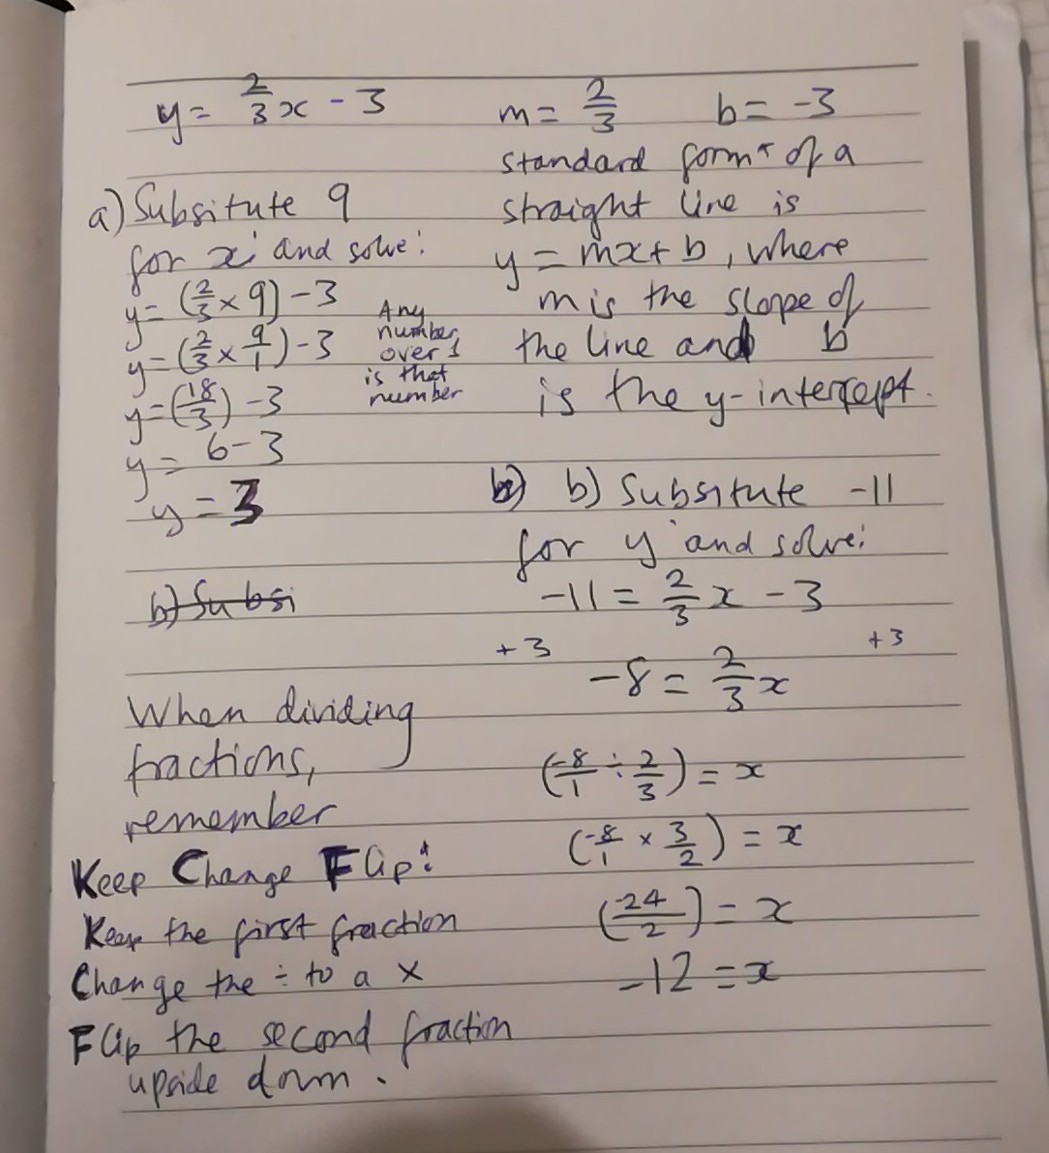 y = 2/3 x - 3
a) Subsitute 9
for x and solve:
y = (2/3 × 9) - 3
y = (2/3 × 9/1) - 3
y = (18/3) - 3
y = 6 - 3
y = 3
Any
number
over 1
is that
number
b) Subsi
m = 2/3 b = -3
standard form of a
straight line is
y = mx + b, where
m is the slope of
the line and b
is the y-intercept.
b) b) Subsitute -11
for y and solve:
-11 = 2/3 x - 3
+3 +3
-8 = 2/3 x
(-8/1 ÷ 2/3) = x
(-8/1 × 3/2) = x
(-24/2) = x
-12 = x
When dividing
fractions,
remember
Keep Change Flip:
Keep the first fraction
Change the ÷ to a ×
Flip the second fraction
upside down.